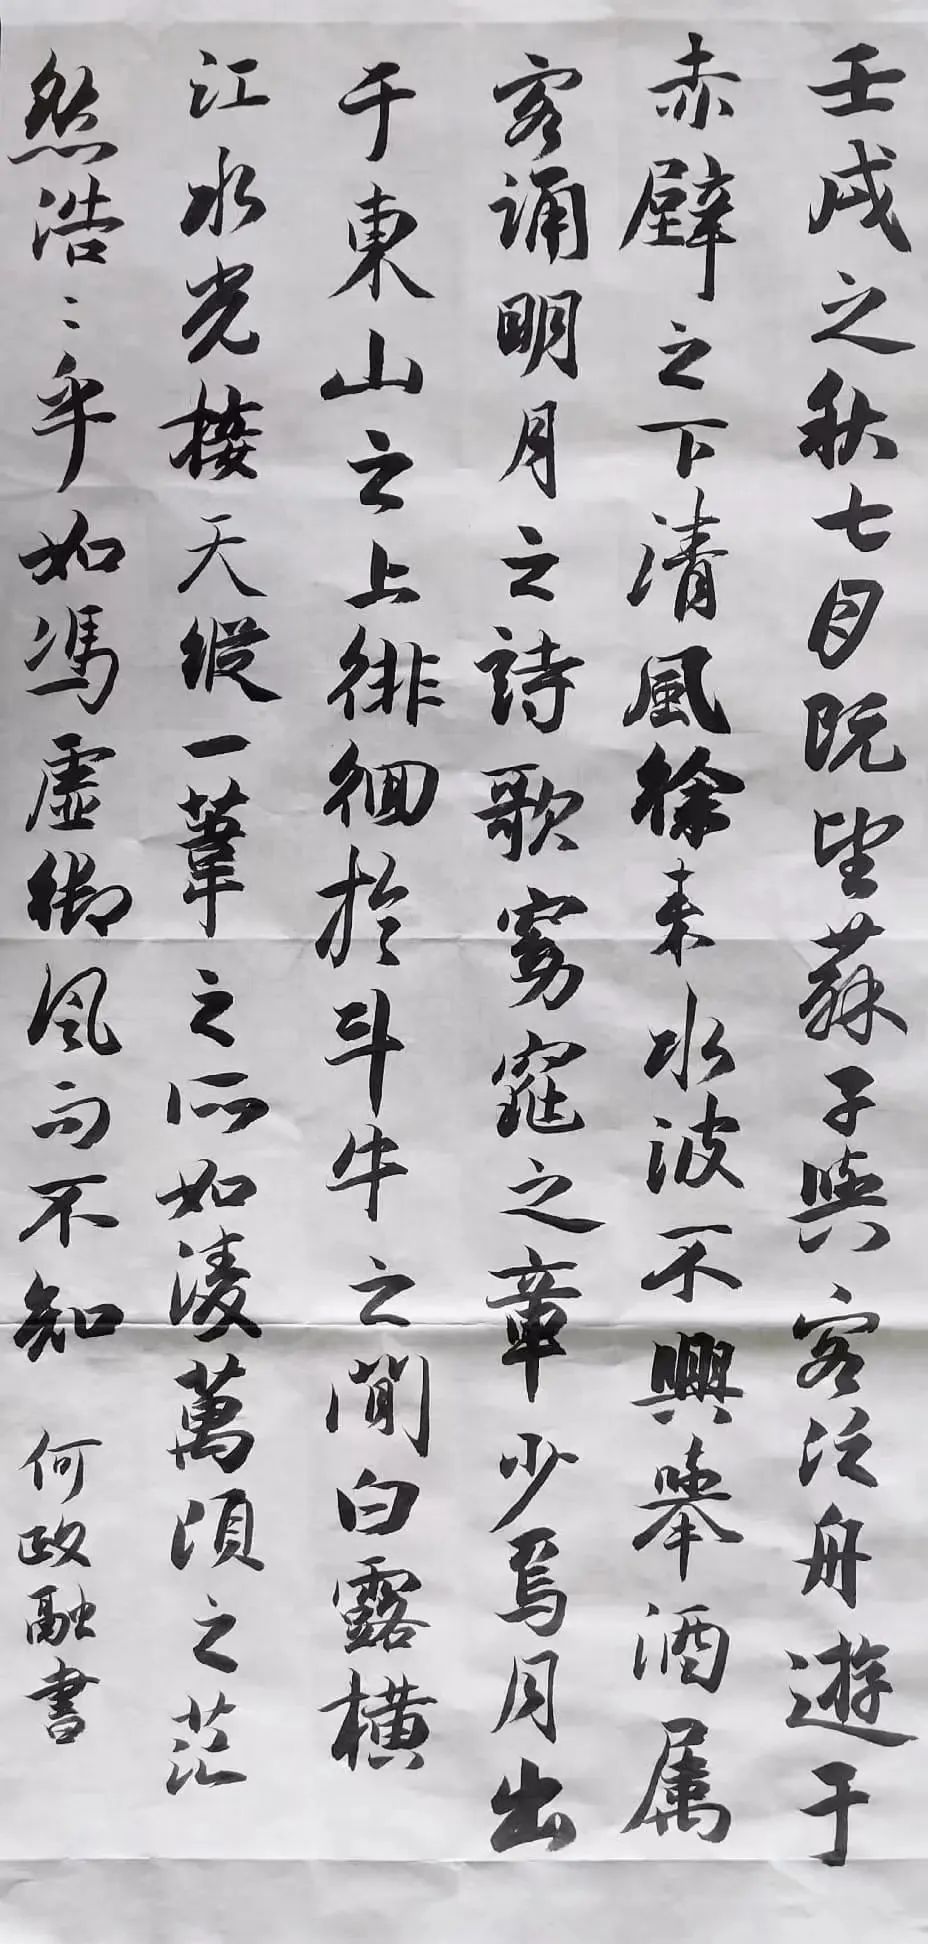 壬戌之秋七月既望蘇子與客泛舟遊于
赤壁之下清風徐来水波不興舉酒属
客誦明月之詩歌窈窕之章少焉月出
于東山之上徘徊於斗牛之間白露横
江水光接天縱一葦之所如凌萬頃之茫
然浩〻乎如馮虚御風而不知
何政融書